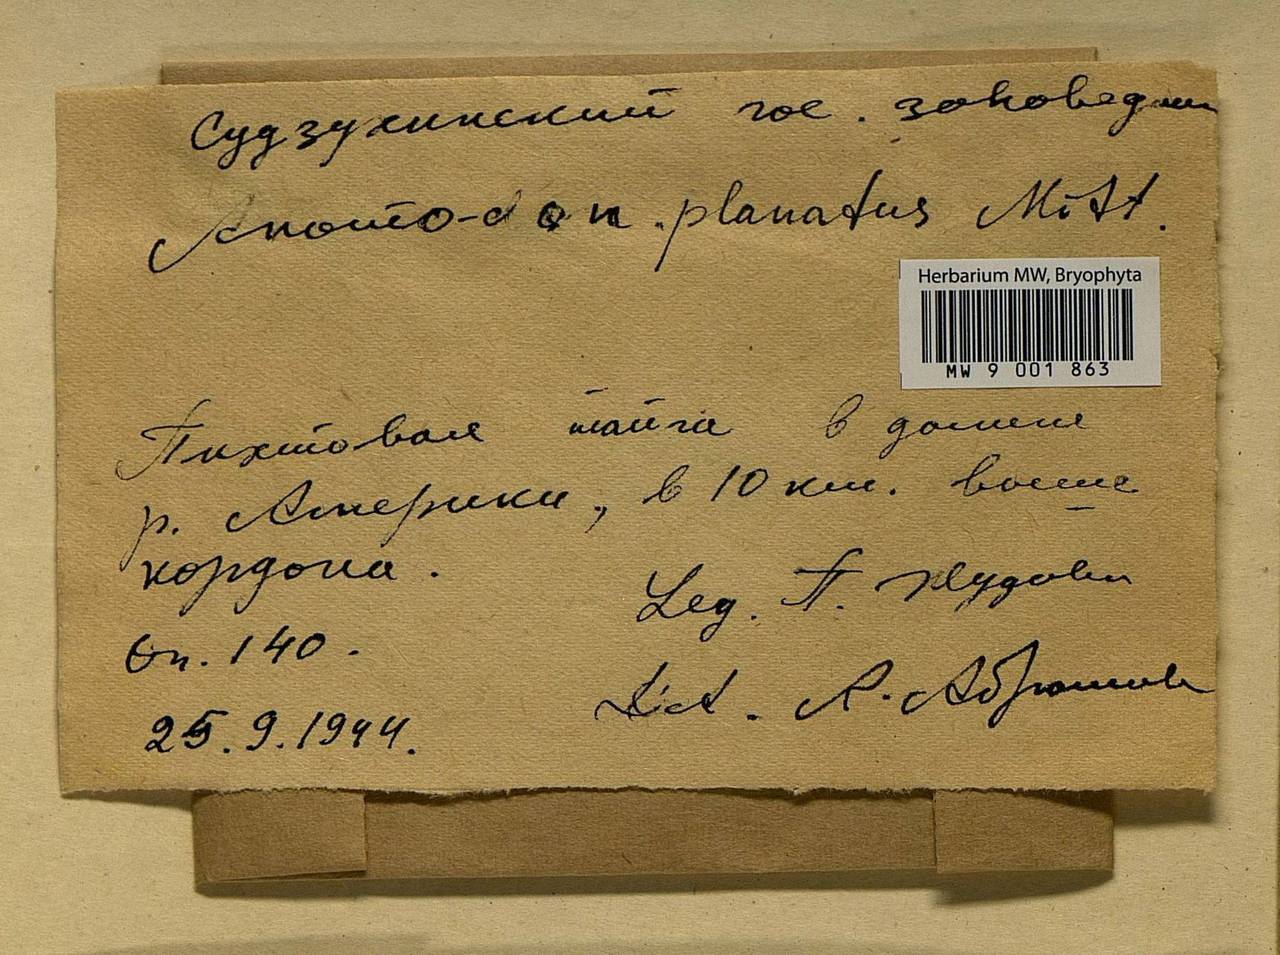 Судзухинский гос. заповедник
Anomodon planatus Mitt.
Herbarium MW, Bryophyta
MW 9 001 863
Пихтовая тайга в долине
р. Америки, в 10 км. выше
кордона.
Leg. П. Жудова
Оп. 140.
Det. Л. Абрамова
25.9.1944.